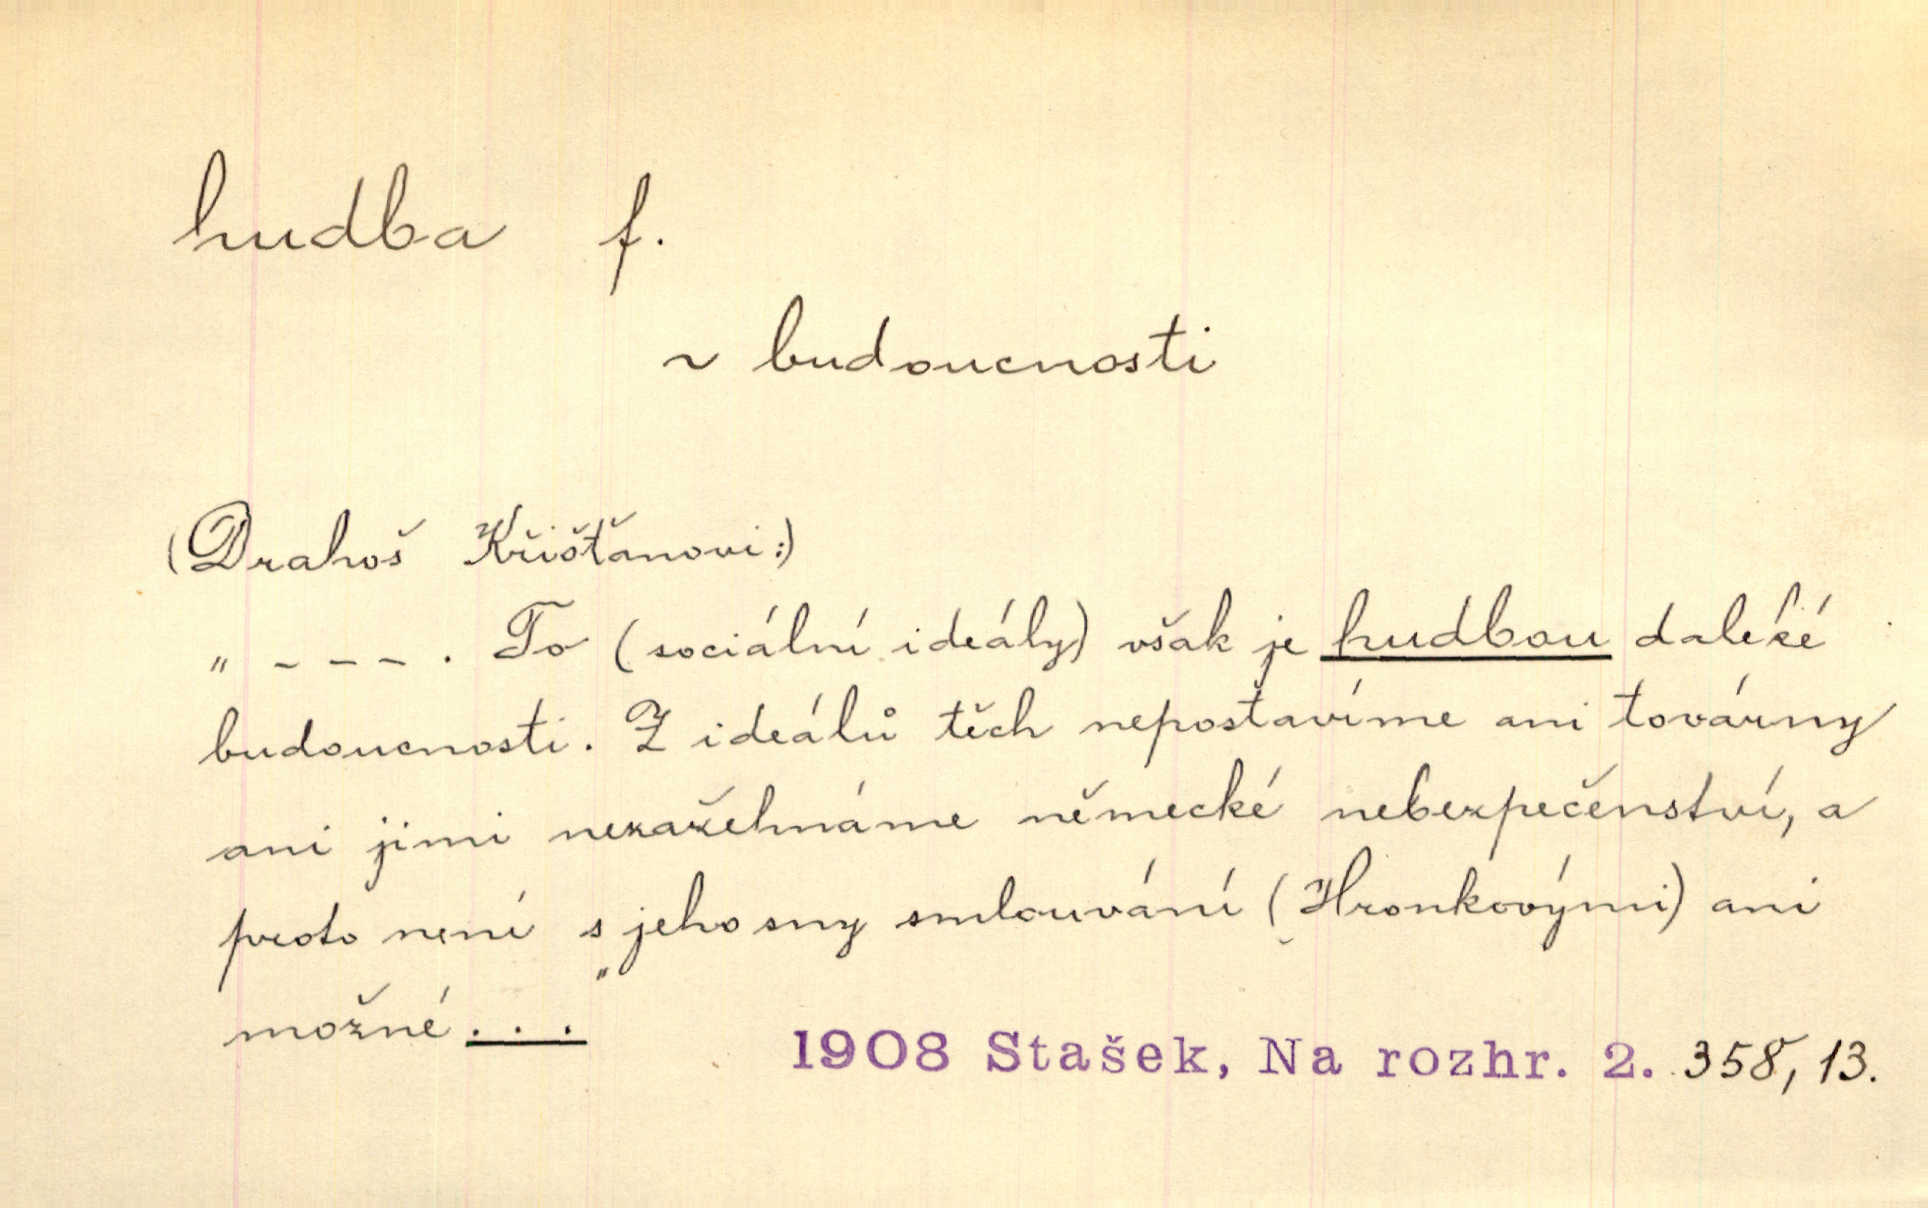 hudba f.
~ budoucnosti
(Drahoš Křišťanovi:)
„ – – – . To (sociální ideály) však je hudbou daleké
budoucnosti. Z ideálů těch nepostavíme ani továrny
ani jimi nezažehnáme německé nebezpečenství, a
proto není s jeho sny smlouvání (Hronkovými) ani
možné . . . "
1908 Stašek, Na rozhr. 2. 358, 13.